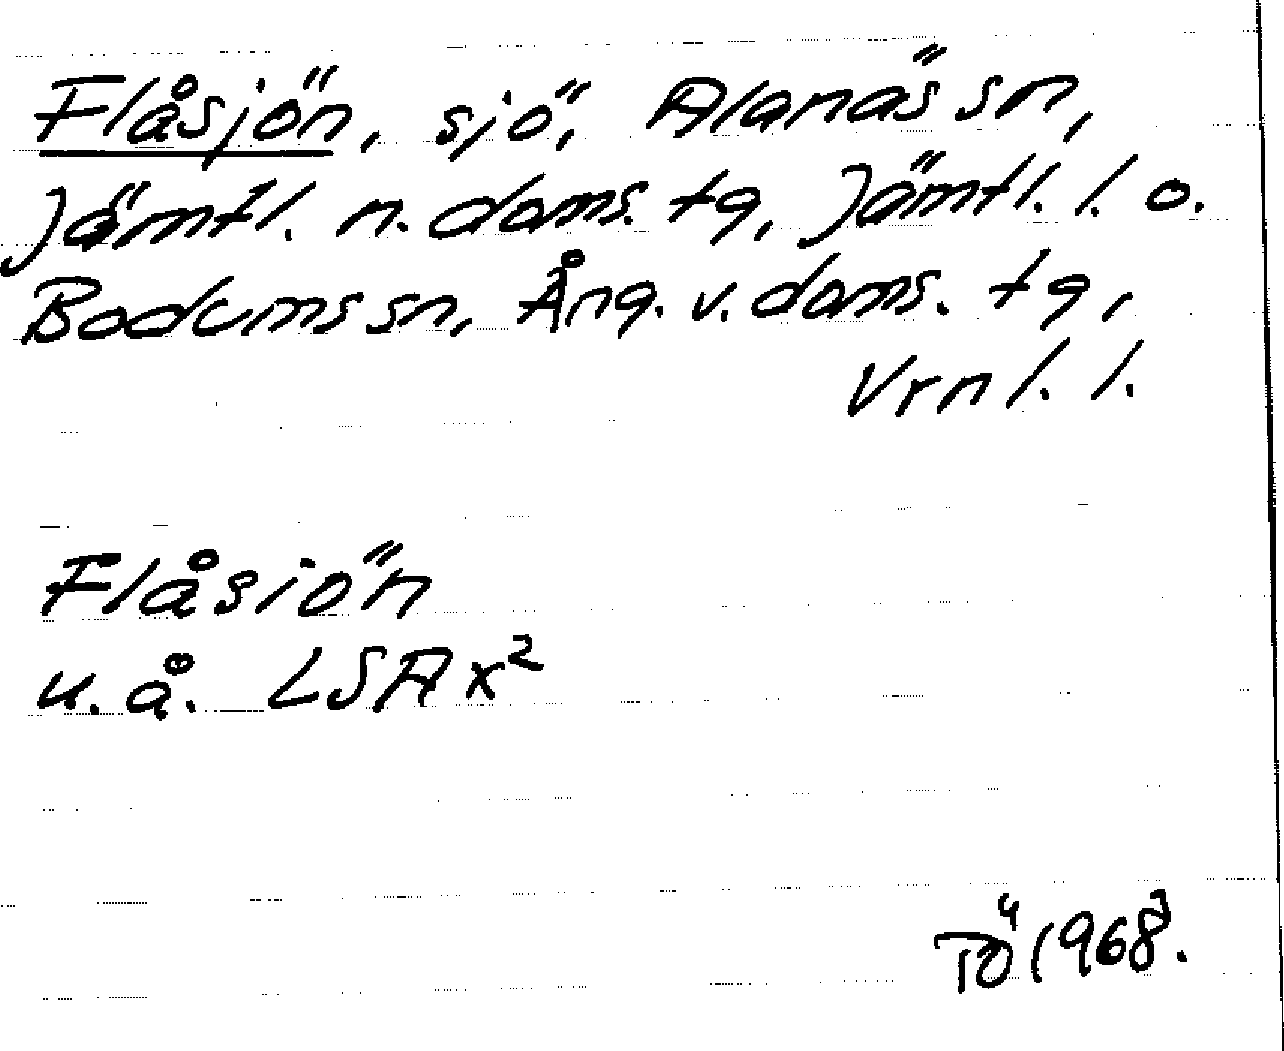 Flåsjön, sjö, Alanäs sn,
Jämtl. n. doms. tg, Jämtl. l. o.
Bodums sn, Ång. v. doms. tg,
Vrnl. l.
Flåsiön
u. å. LSA x²
TÖ 1968.